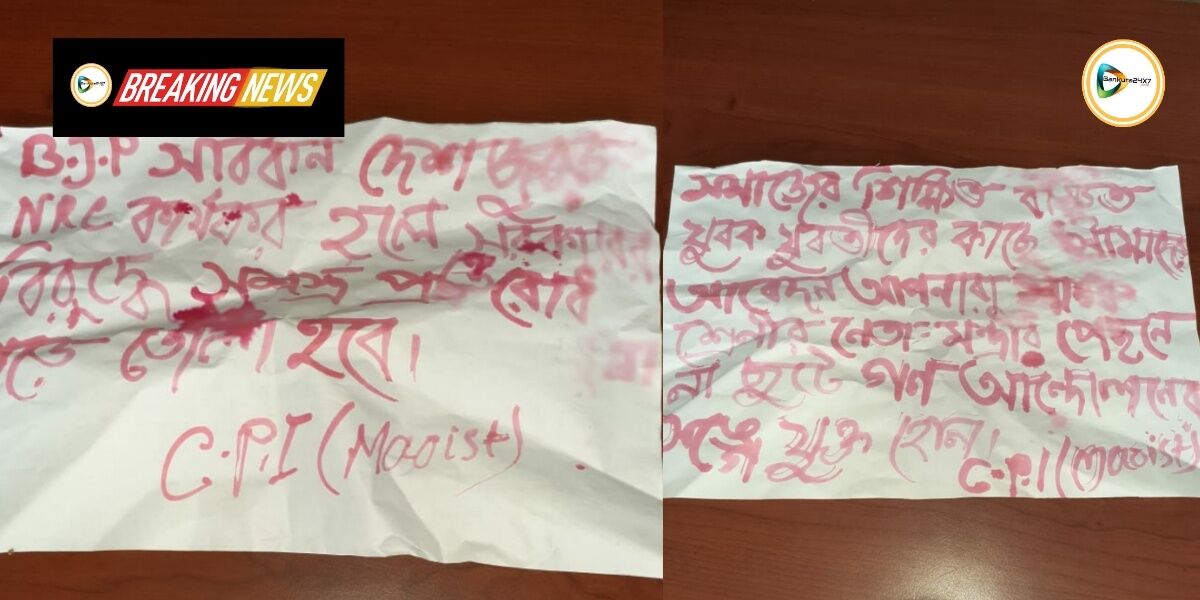 BREAKING NEWS
Bankura24X7
B.J.P সাবধান দেশ জুড়ে
NRC কার্যকর হলে সরকারের
বিরুদ্ধে সশস্ত্র প্রতিরোধ
গড়ে তোলা হবে।
C.P.I (Maoist)
সমাজের শিক্ষিত বঞ্চিত
যুবক যুবতীদের কাছে আমাদের
আবেদন আপনারা শাসক
শ্রেণীর নেতা মন্ত্রীর পেছনে
না ছুটে গণ আন্দোলনের
সঙ্গে যুক্ত হোন।
C.P.I (Maoist)